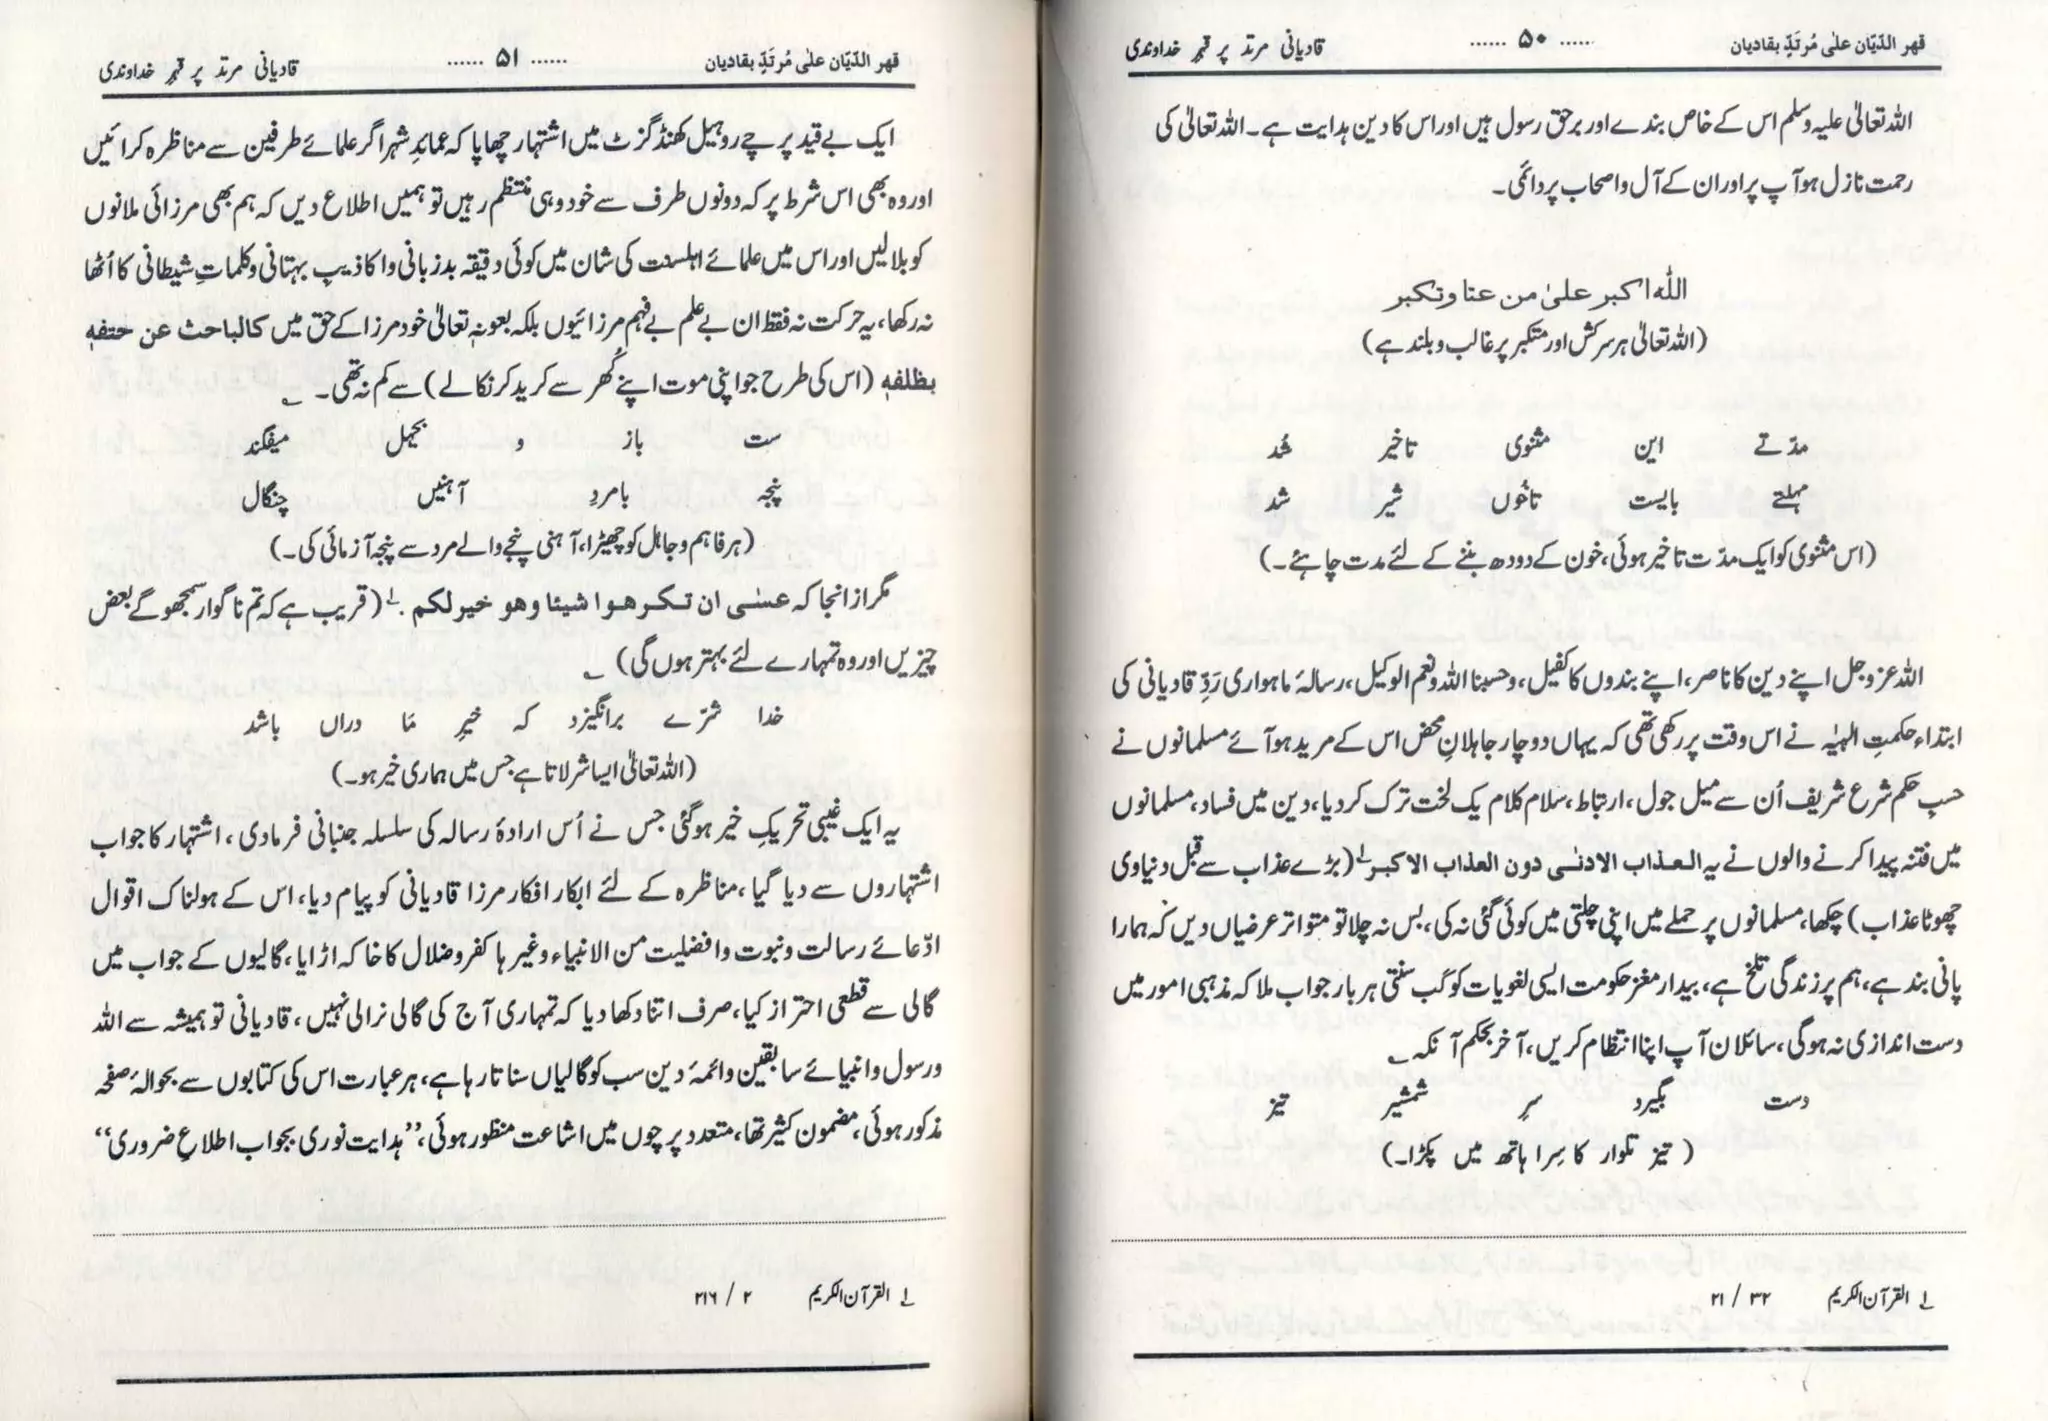 قهر الدّیّان علیٰ مُرتَدٍّ بقادیان ...... ۵۰ ...... قادیانی مرتد پر قہرِ خداوندی
اللہ تعالیٰ علیہ وسلم اس کے خاص بندے اور برحق رسول ہیں اور اس کا دین ہدایت ہے۔ اللہ تعالیٰ کی
رحمت نازل ہو آپ پر اور ان کے آل و اصحاب پر دائمی۔
اللہ اکبر علیٰ من عتا وتکبر
(اللہ تعالیٰ ہر سرکش اور متکبر پر غالب و بلند ہے)
مدّتے این مثنوی تاخیر شُد
مہلتے بایست تاخُوں شیر شد
(اس مثنوی کو ایک مدّت تاخیر ہوئی، خون کے دودھ بننے کے لئے مدت چاہئے۔)
اللہ عزوجل اپنے دین کا ناصر، اپنے بندوں کا کفیل، وحسبنا اللہ ونعم الوکیل، رسالۂ ماہواری رَدِّ قادیانی کی
ابتداء حکمتِ الٰہیّہ نے اس وقت پر رکھی تھی کہ یہاں دو چار جاہلانِ محض اس کے مرید ہو آئے مسلمانوں نے
حسبِ حکم شرع شریف اُن سے میل جول، ارتباط، سلام کلام یک لخت ترک کردیا، دین میں فساد، مسلمانوں
میں فتنہ پیدا کرنے والوں نے یہ العذاب الادنٰی دون العذاب الاکبر ۱؎ (بڑے عذاب سے قبل دنیاوی
چھوٹا عذاب) چکھا، مسلمانوں پر حملے میں اپنی چلتی میں کوئی گئی نہ کی، بس نہ چلا تو متواتر عرضیاں دیں کہ ہمارا
پانی بند ہے، ہم پر زندگی تلخ ہے، بیدار مغز حکومت ایسی لغویات کو کَب سنتی ہر بار جواب ملا کہ مذہبی امور میں
دست اندازی نہ ہوگی، سائلان آپ اپنا انتظام کریں، آخر بحکم آنکہ ؎
دست بگیرد سرِ شمشیر تیز
(تیز تلوار کا سِرا ہاتھ میں پکڑا۔)
۱؎ القرآن الکریم ۳۲ / ۲۱
قهر الدّیّان علیٰ مُرتَدٍّ بقادیان ...... ۵۱ ...... قادیانی مرتد پر قہرِ خداوندی
ایک بے قید پرچے روہیل کھنڈ گزٹ میں اشتہار چھاپا کہ عمائدِ شہر اگر علمائے طرفین سے مناظرہ کرائیں
اور وہ بھی اس شرط پر کہ دونوں طرف سے خود وہی منتظم رہیں تو ہمیں اطلاع دیں کہ ہم بھی مرزائی ملانوں
کو بلالیں اور اس میں علمائے اہلسنت کی شان میں کوئی دقیقہ بدزبانی و اکاذیب بہتانی و کلماتِ شیطانی کا اُٹھا
نہ رکھا، یہ حرکت نہ فقط ان بے علم بے فہم مرزائیوں بلکہ بعونہٖ تعالیٰ خود مرزا کے حق میں کالباحث عن حتفہٖ
بظلفہٖ (اس کی طرح جو اپنی موت اپنے کُھر سے کرید کر نکالے) سے کم نہ تھی۔ ؎
ست باز و بجہل میفگند
پنجہ بامردِ آہنیں چنگال
(ہر فاہم و جاہل کو چھیڑا، آہنی پنجے والے مرد سے پنجہ آزمائی کی۔)
مگر ازانجا کہ عسٰی ان تکرھوا شیئا وھو خیرلکم . ۱؎ (قریب ہے کہ تم ناگوار سمجھوگے بعض
چیزیں اور وہ تمہارے لئے بہتر ہوں گی) ؎
خدا شرّے برانگیزد کہ خیرِ مَا دراں باشد
(اللہ تعالیٰ ایسا شر لاتا ہے جس میں ہماری خیر ہو۔)
یہ ایک غیبی تحریکِ خیر ہوگئی جس نے اُس ارادۂ رسالہ کی سلسلہ جنبانی فرمادی، اشتہار کا جواب
اشتہاروں سے دیا گیا، مناظرہ کے لئے ابکار افکار مرزا قادیانی کو پیام دیا، اس کے ہولناک اقوال
ادّعائے رسالت و نبوت و افضلیت من الانبیاء وغیرہا کفر و ضلال کا خاکہ اڑایا، گالیوں کے جواب میں
گالی سے قطعی احتراز کیا، صرف اتنا دکھا دیا کہ تمہاری آج کی گالی نرالی نہیں، قادیانی تو ہمیشہ سے اللہ
ورسول و انبیائے سابقین و ائمۂ دین سب کو گالیاں سناتا رہا ہے، ہر عبارت اس کی کتابوں سے بحوالۂ صفحہ
مذکور ہوئی، مضمون کثیر تھا، متعدد پرچوں میں اشاعت منظور ہوئی، ’’ہدایت نوری بجواب اطلاعِ ضروری‘‘
۱؎ القرآن الکریم ۲ / ۲۱۶